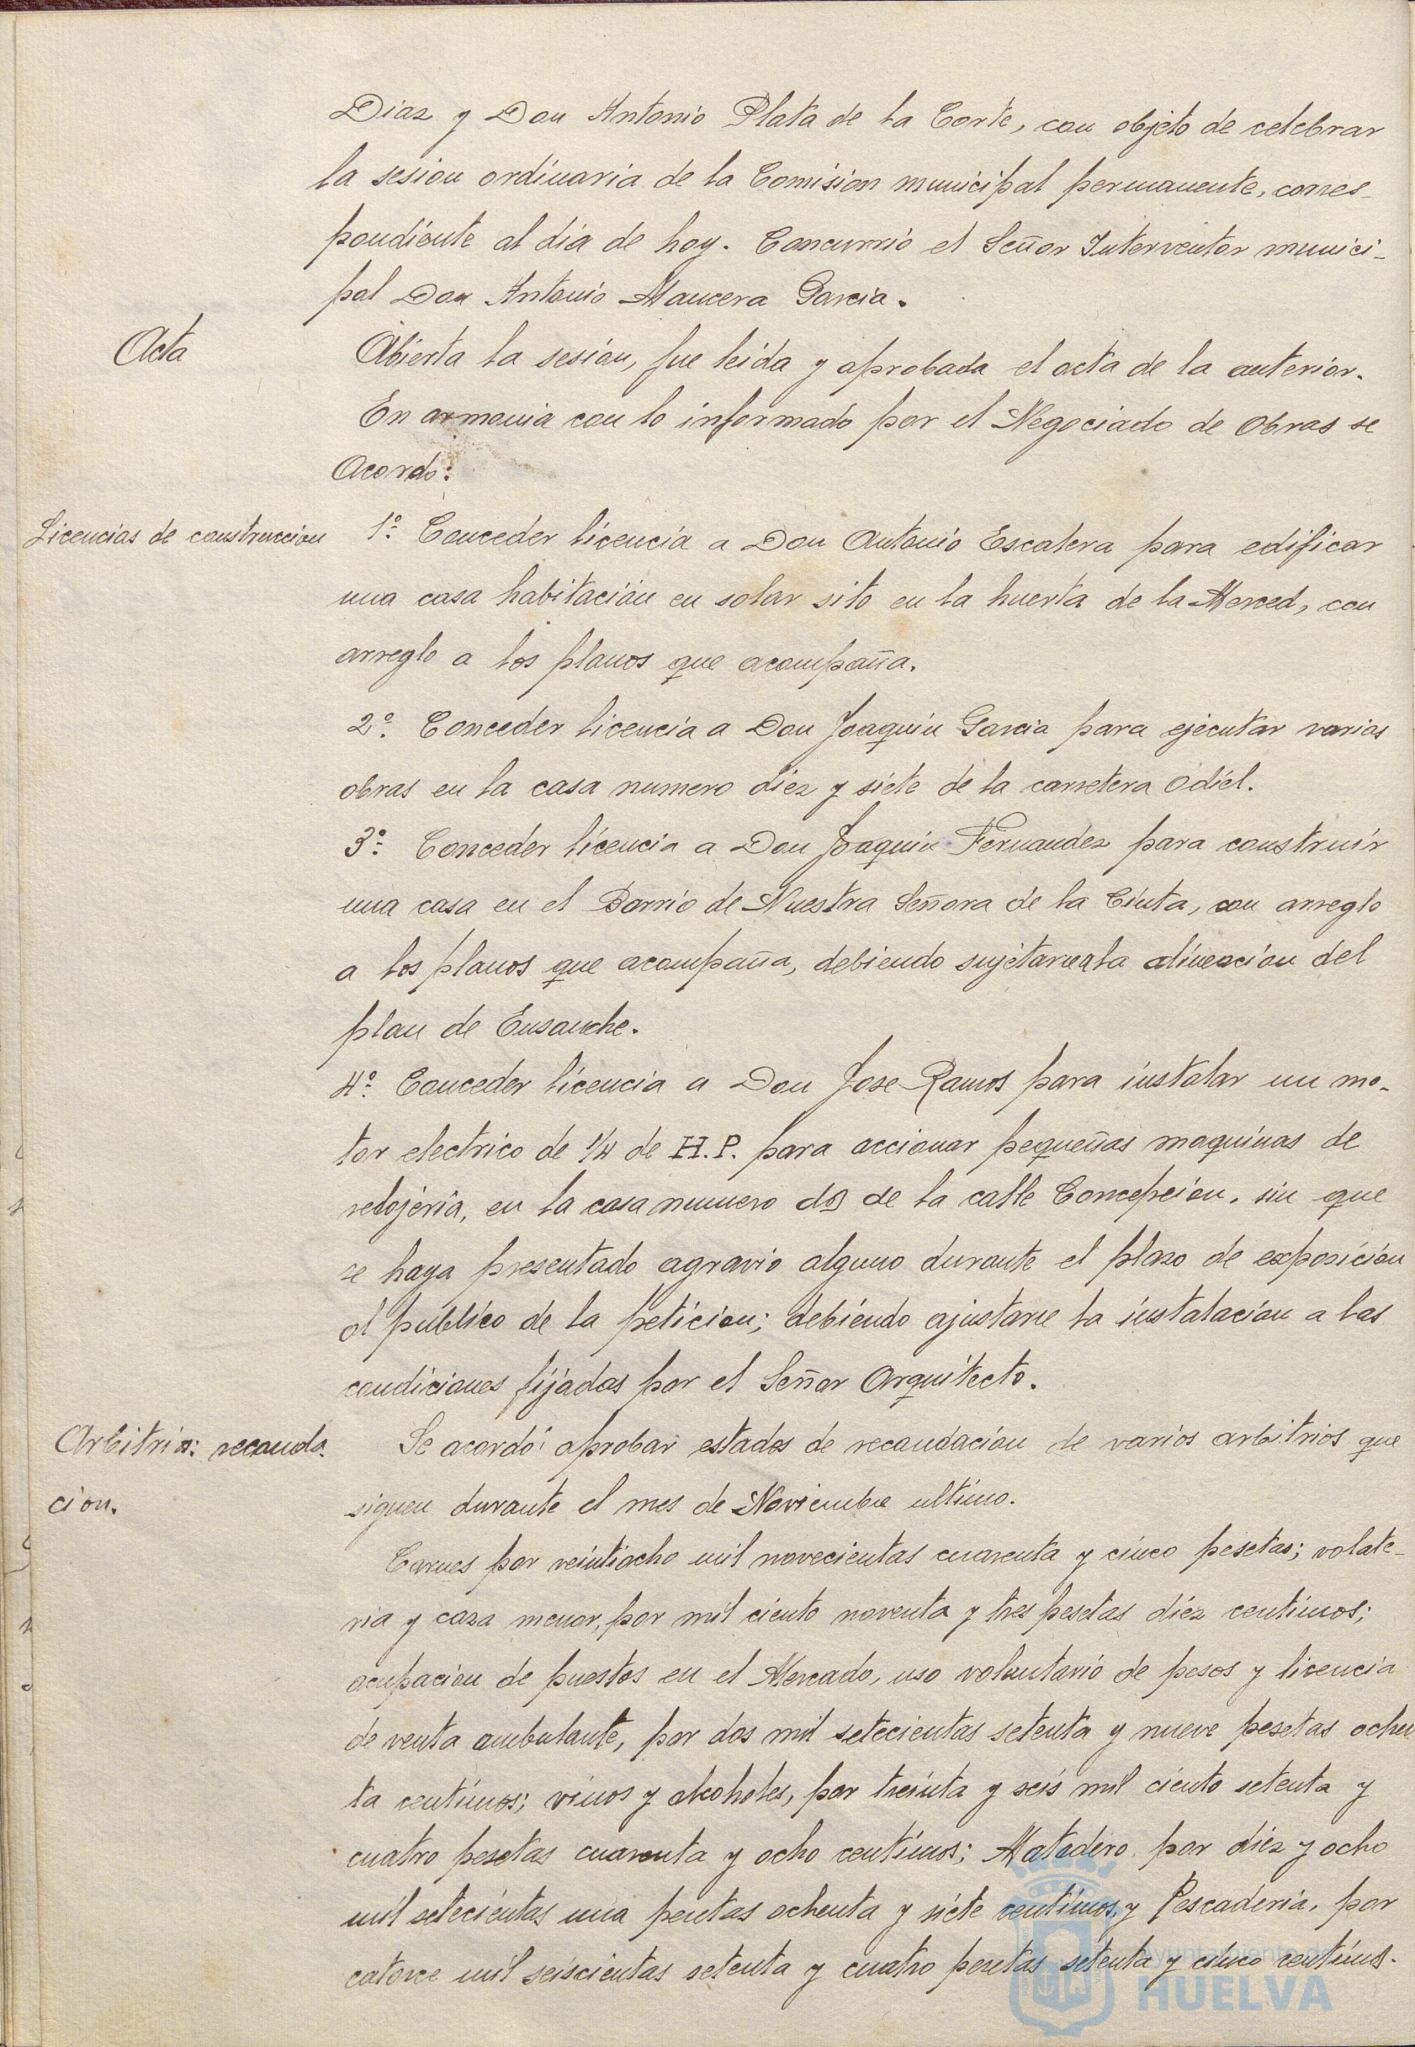 Diaz y Don Antonio Plata de la Corte, con objeto de celebrar
la sesion ordinaria de la Comision municipal permanente, corres-
pondiente al dia de hoy. Concurrió el Señor Interventor munici-
pal Don Antonio Mancera Garcia.
Acta
Abierta la sesion, fue leida y aprobada el acta de la anterior.
En armonia con lo informado por el Negociado de Obras se
acordo:
Licencias de construccion
1º Conceder licencia a Don Antonio Escalera para edificar
una casa habitación en solar sito en la huerta de la Merced, con
arreglo a los planos que acompaña.
2º Conceder licencia a Don Joaquin Garcia para ejecutar varias
obras en la casa numero diez y siete de la carretera Odiel.
3º Conceder licencia a Don Joaquin Fernandez para construir
una casa en el Barrio de Nuestra Señora de la Cinta, con arreglo
a los planos que acompaña, debiendo sujetarse a la alineacion del
plan de Ensanche.
4º Conceder licencia a Don Jose Ramos para instalar un mo-
tor electrico de 1/4 de H.P. para accionar pequeñas maquinas de
relojeria, en la casa numero dos de la calle Concepcion, sin que
se haya presentado agravio alguno durante el plazo de exposición
al publico de la peticion; debiendo ajustarse la instalacion a las
condiciones fijadas por el Señor Arquitecto.
Arbitrios: recauda-
cion.
Se acordó aprobar estados de recaudacion de varios arbitrios que
siguen durante el mes de Noviembre ultimo.
Carnes por veintiocho mil novecientas cuarenta y cinco pesetas; volate-
ria y caza menor, por mil ciento noventa y tres pesetas diez centimos;
ocupacion de puestos en el Mercado, uso voluntario de pesos y licencia
de venta ambulante, por dos mil setecientas setenta y nueve pesetas ochen
ta centimos; vinos y alcoholes, por treinta y seis mil ciento setenta y
cuatro pesetas cuarenta y ocho centimos; Matadero por diez y ocho
mil setecientas una pesetas ochenta y siete centimos y Pescaderia, por
catorce mil seiscientas setenta y cuatro pesetas setenta y cinco centimos.
Ayuntamiento de
HUELVA